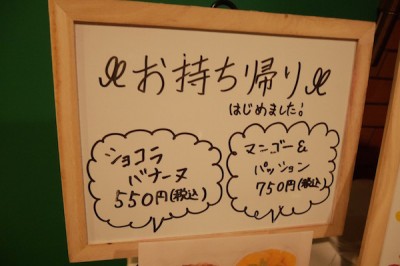 お持ち帰り
はじめました!
ショコラ
バナーヌ
550円(税込)
マンゴー&
パッション
750円(税込)